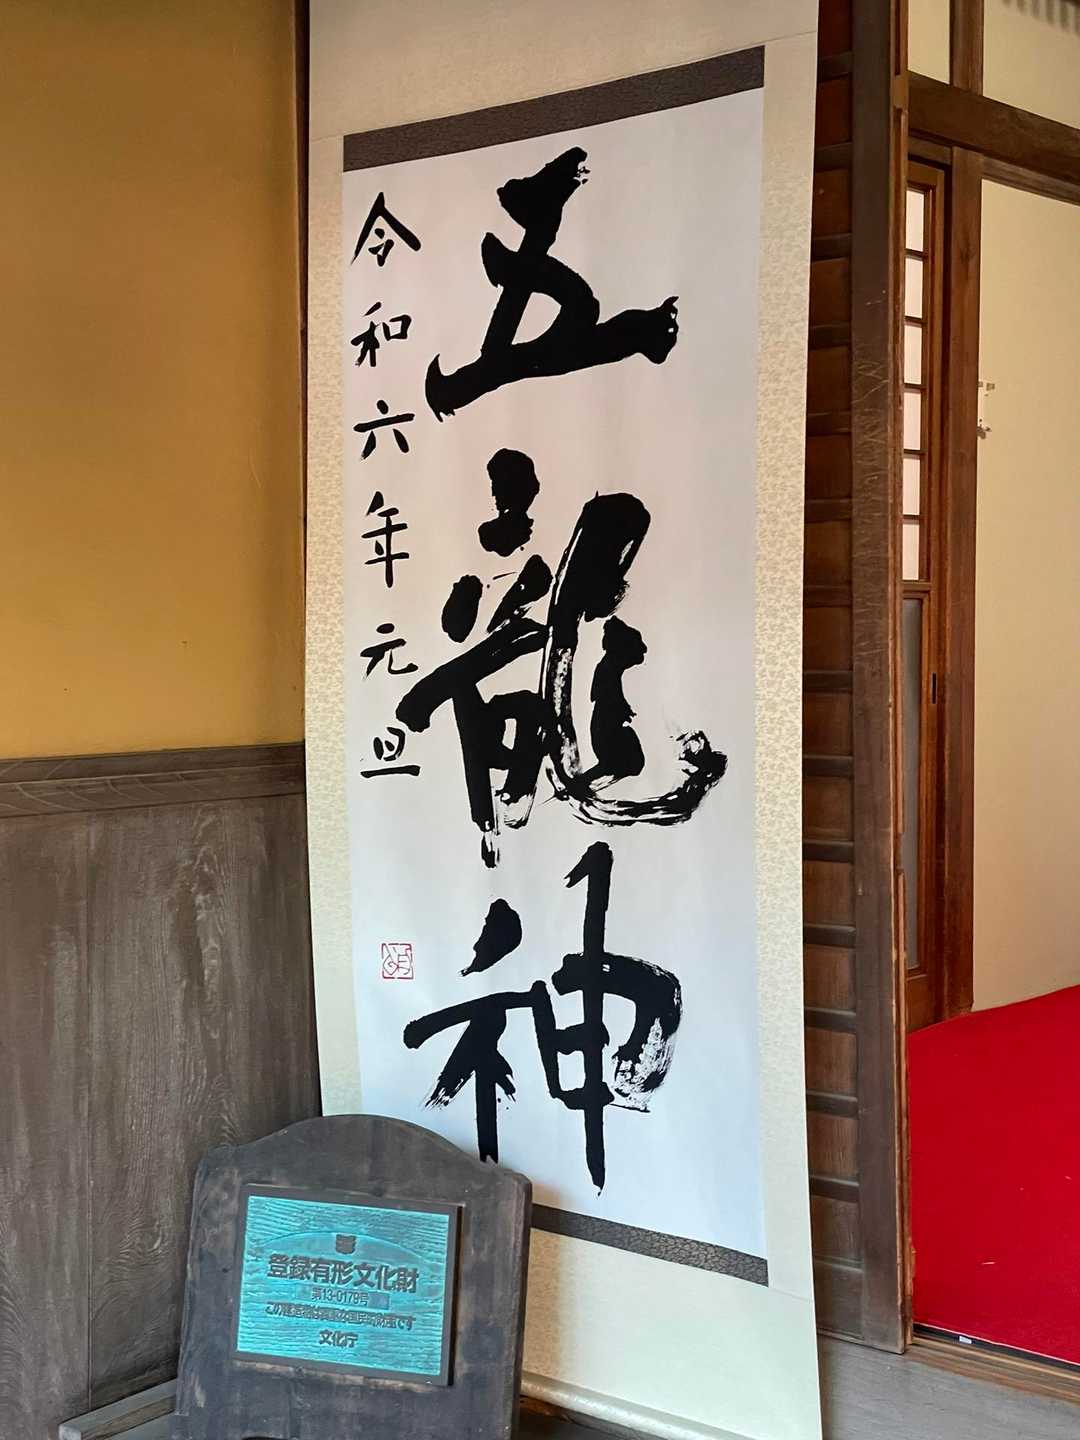 五龍神
令和六年元旦
登録有形文化財
第13-0179号
この建造物は貴重な国民的財産です
文化庁